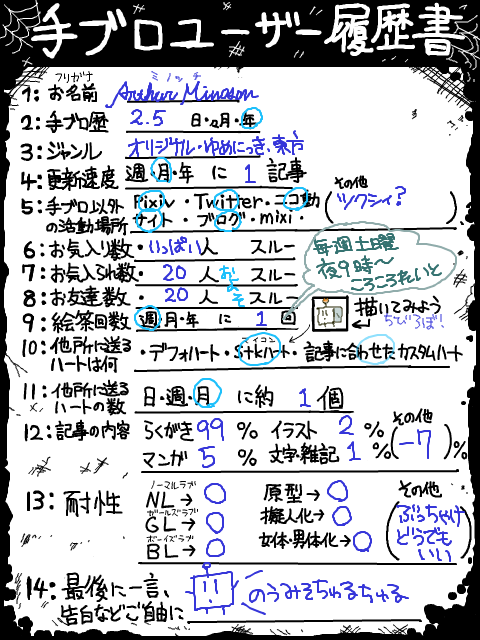 手ブロユーザー履歴書
フリガナ ミノッチ
1: お名前 Arthur Minoson
2: 手ブロ歴 2.5 日・ヵ月・年
3: ジャンル オリジナル・ゆめにっき・東方
4: 更新速度 週・月・年 に 1 記事
5: 手ブロ以外の活動場所 Pixiv・Twitter・ニコ動 サイト・ブログ・mixi・ その他 (ツクシィ?)
6: お気入り数・いっぱい人 スルー
7: お気入られ数・20 人 スルー
8: お友達数・20 人 スルー
およそ
毎週土曜
夜9時〜
ころころたいと
9: 絵茶回数 週・月・年 に 1 回
描いてみよう
ちびろぼ!
10: 他所に送るハートは何 ・デフォハート・s+kハート・記事に合わせたカスタムハート
11: 他所に送るハートの数 日・週・月 に約 1 個
12: 記事の内容 らくがき 99 % イラスト 2 % その他
マンガ 5 % 文字・雑記 1 % (-7)%
13: 耐性 ノーマルラブ NL→○ 原型→○ その他
ガールズラブ GL→○ 擬人化→○ (ぶっちゃけ
ボーイズラブ BL→○ 女体・男体化→○ どうでも
いい)
14: 最後に一言、
告白などご自由に のうみそちゅるちゅる